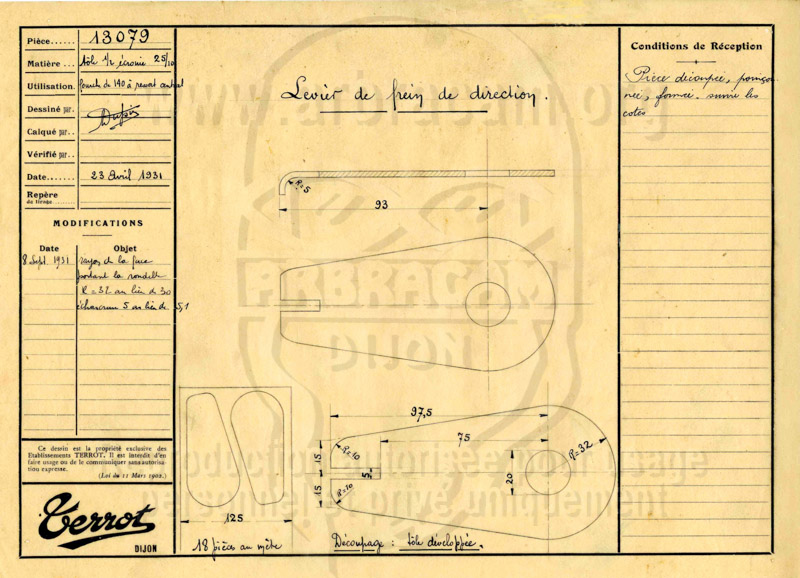 Pièce...... 13079
Matière ... tôle 1/2 écrouie 25/10
Utilisation. fourche de 140 à ressort central
Dessiné par. Dupois
Calqué par...
Vérifié par..
Date....... 23 Avril 1931
Repère
du tirage.........
MODIFICATIONS
Date Objet
8 Sept. 1931 rayon de la face
portant la rondelle
R = 32 au lieu de 30
échancrure 5 au lieu de 5,1
Ce dessin est la propriété exclusive des
Etablissements TERROT. Il est interdit d'en
faire usage ou de le communiquer sans autorisa-
tion expresse.
(Loi du 11 Mars 1902.)
Terrot
DIJON
Levier de frein de direction.
R=5
93
125
18 pièces au mètre
97,5
75
R=10
R=32
15
5
20
15
R=10
Découpage : tôle développée.
Conditions de Réception
Pièce découpée, poinçon-
née, formée. suivre les
cotes
ARBRACAM
DIJON